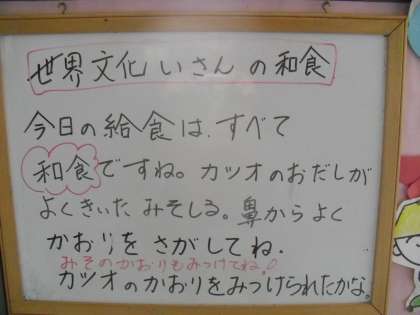 世界文化いさんの和食
今日の給食は、すべて
和食ですね。カツオのおだしが
よくきいたみそしる。鼻からよく
かおりをさがしてね.
みそのかおりもみつけてね。
カツオのかおりをみつけられたかな。